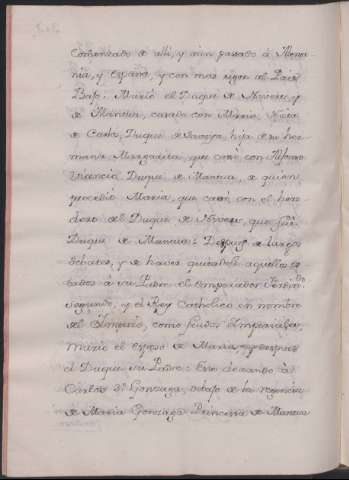 comenzado de alli, y aun passado à Alema
nia, y España, y con mas rigor al Pais
Baxo. Murió el Duque de Nivers, y
de Mantua, casado con Maria, Nieta
de Carlos, Duque de Saboya, hija de su her
mana Margarita, que casó con
Vicencio Duque de Mantua, de quien
procedió Maria, que casó con el here
dero del Duque de Nivers, que fue
Duque de Mantua: Despues de largos
debates, y de haver quitadole aquellos es
tados à su Padre el Emperador Ferdin.do
segundo, y el Rey Catholico en nombre
del Imperio, como feudos Imperiales,
murió el esposo de Maria, y despues
el Duque su Padre: Este dexando à
Carlos 3º Gonzaga, debajo de la regencia
de Maria Gonzaga Princessa de Mantua